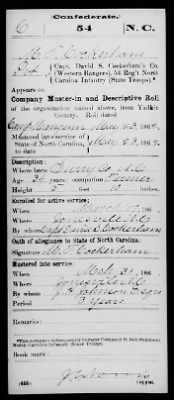 Confederate.
C 54 N.C.
M. P. Cockerham
Pvt, Capt. David S. Cockerham's Co.
(Western Rangers), 54 Reg't North
Carolina Infantry (State Troops).*
Appears on
Company Muster-in and Descriptive Roll
of the organization named above, from Yadkin
County. Roll dated
Camp Mangum May 23, 1862.
Mustered into service of
State of North Carolina, May 23, 1862.
Description:
Where born Surry Co. N.C.
Age occupation Farmer
Height 5 feet 10 inches.
Enrolled for active service:
When March 17, 186
Where Jonesville N.C.
By Capt David S. Cockerham
Oath of allegiance to State of North Carolina:
Signature M. P. Cockerham
Mustered into service:
When Mch 31, 186
Where Jonesville N.C.
By Johnson
Period 3 Years
Remarks:
*This company subsequently became Company
North Carolina Infantry State Troops.
Book mark:
(655)
Copyist.